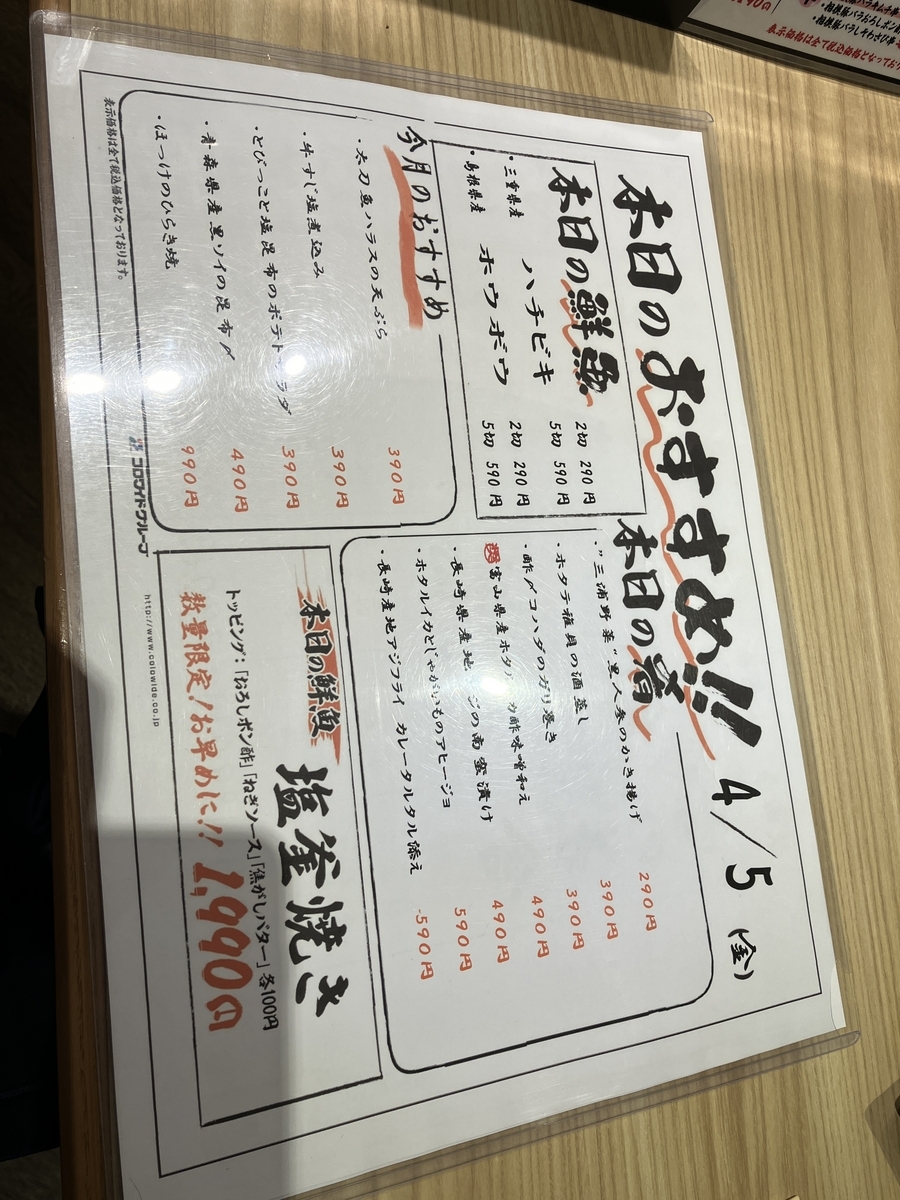 本日のおすすめ!! 4/5 (金)
本日の鮮魚
・三重県産 ハチビキ 2切 290円
5切 590円
・島根県産 ホウボウ 2切 290円
5切 590円
今月のおすすめ
・太刀魚ハラスの天ぷら 390円
・牛すじ塩煮込み 390円
・とびっこと塩昆布のポテトサラダ 390円
・青森県産黒ソイの昆布〆 490円
・ほっけのひらき焼 990円
本日の肴
・"三浦野菜"黒人参のかき揚げ 290円
・ホタテ稚貝の酒蒸し 390円
・酢〆コハダのガリ巻き 390円
富山県産ホタ カ酢味噌和え 490円
・長崎県産地 ジの南蛮漬け 490円
・ホタルイカとじゃがいものアヒージョ 590円
・長崎産地アジフライ カレータルタル添え 590円
本日の鮮魚 塩釜焼き
トッピング:「おろしポン酢」「ねぎソース」「焦がしバター」各100円
数量限定!お早めに!! 1,990円
表示価格は全て税込価格となっております。
コロワイドグループ http://www.colowide.co.jp
・相模豚バラおろしポン酢
・相模豚バラしそわさび串
表示価格は全て税込価格となっており